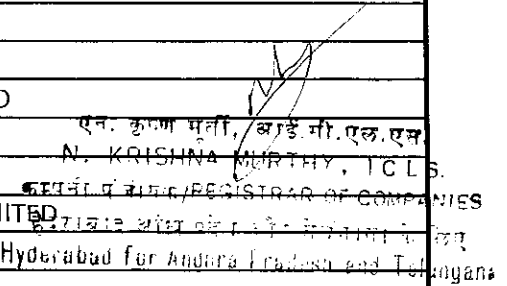 D
एन. कृष्ण मूर्ती, आई.सी.एल.एस.
N. KRISHNA MURTHY, I C L S.
कम्पनी पंजीयक/REGISTRAR OF COMPANIES
ITED
Hyderabad for Andhra Pradesh and Telangana